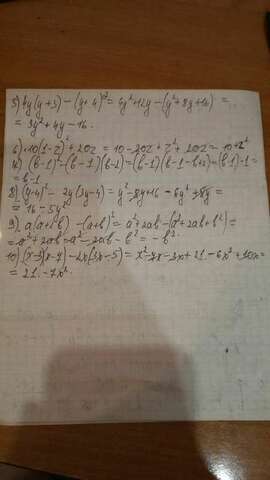 5) 4y(y+3) - (y+4)² = 4y²+12y - (y²+8y+16) =
= 3y²+4y-16.
6) 10(1-z)²+20z = 10-20z+z²+20z = 10+z²
4) (b-1)²-(b-1)(b-2)=(b-1)(b-1-b+2)=(b-1)·1=
= b-1
8) (y-4)² - 2y(3y-4) = y²-8y+16-6y²+8y =
= 16-5y²
9) a(a+2b) -(a+b)² = a²+2ab-(a²+2ab+b²)=
= a²+2ab-a²-2ab-b² = -b².
10) (x-3)(x-7)-2x(3x-5)=x²-7x-3x+21-6x²+10x=
= 21-7x².